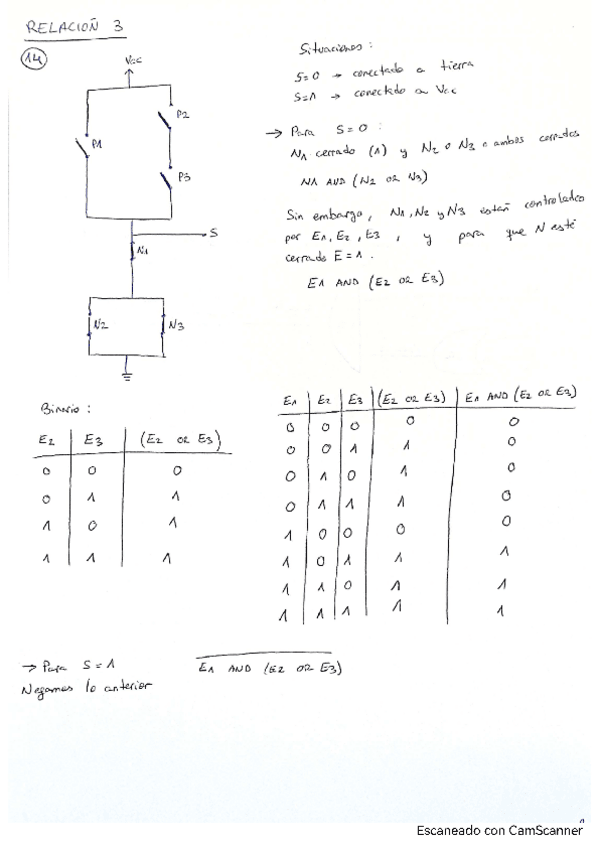 RELACIÓN 3
14
Vcc
P1
P2
P3
S
N1
N2
N3
Situaciones:
S=0 → conectado a tierra
S=1 → conectado a Vcc
→ Para S=0:
N1 cerrado (1) y N2 o N3 o ambos cerrados
N1 AND (N2 OR N3)
Sin embargo, N1, N2 y N3 están controlados
por E1, E2, E3, y para que N esté
cerrado E=1.
E1 AND (E2 OR E3)
Binario:
E2 E3 (E2 OR E3)
0 0 0
0 1 1
1 0 1
1 1 1
E1 E2 E3 (E2 OR E3) E1 AND (E2 OR E3)
0 0 0 0 0
0 0 1 1 0
0 1 0 1 0
0 1 1 1 0
1 0 0 0 0
1 0 1 1 1
1 1 0 1 1
1 1 1 1 1
→ Para S=1 E1 AND (E2 OR E3)
Negamos lo anterior
Escaneado con CamScanner